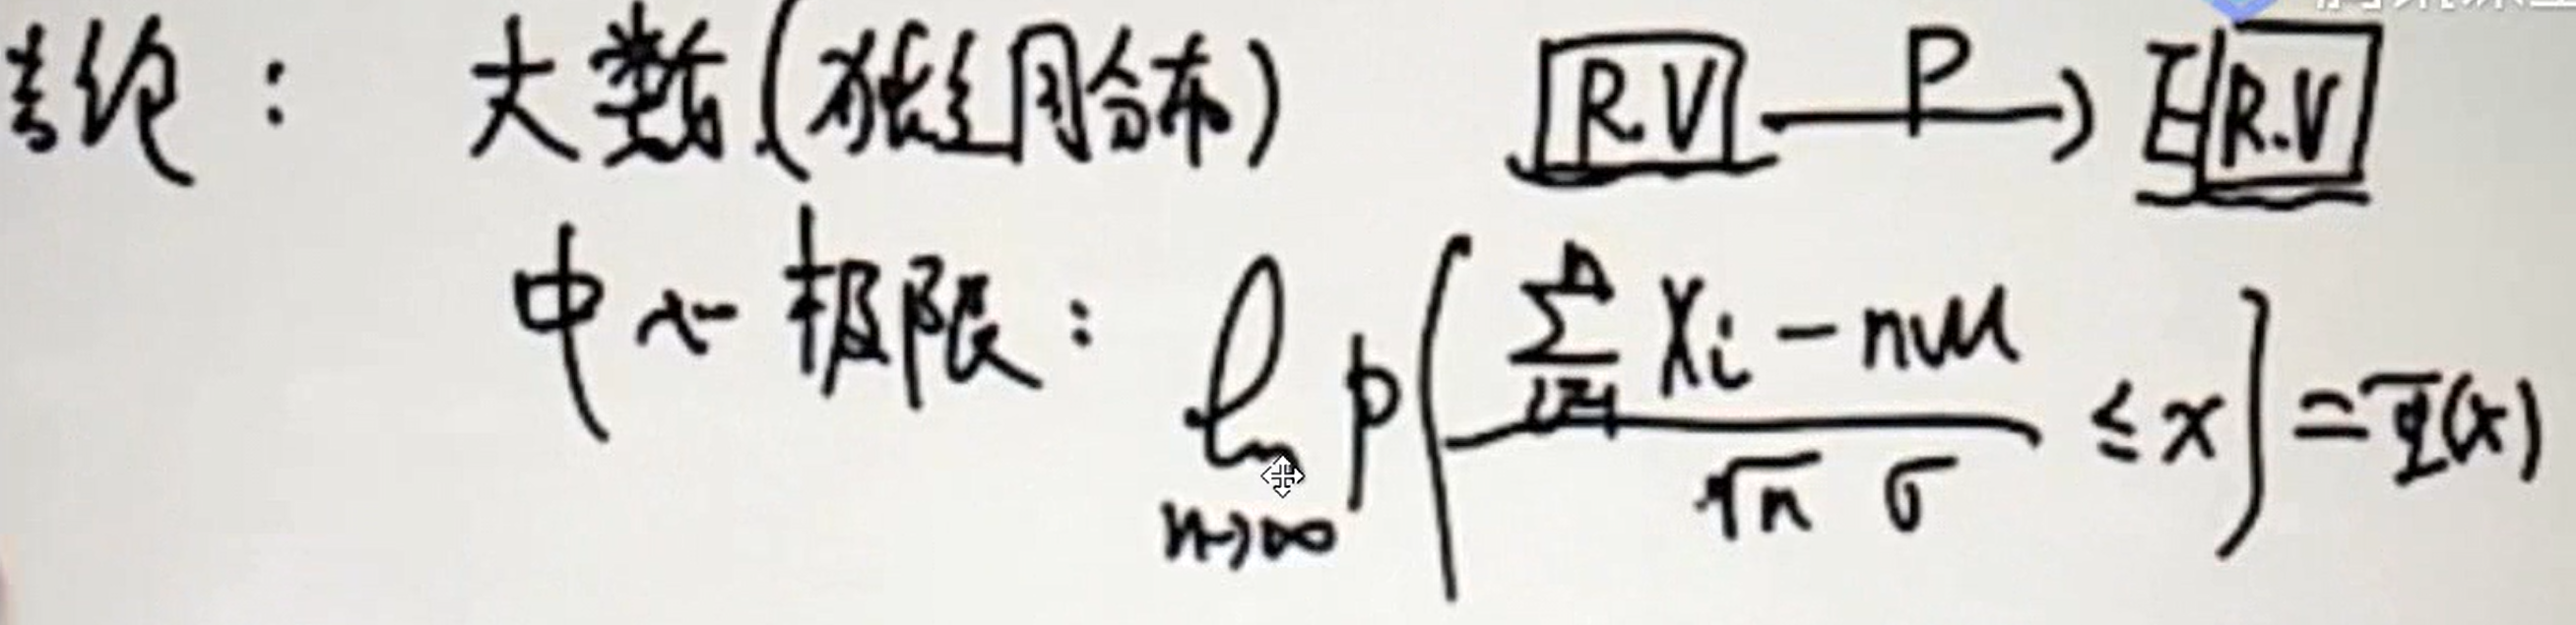 结论： 大数(独立同分布) R.V —P→ E R.V
中心极限： lim n→∞ P( (∑_{i=1}^{n} Xi - nμ) / (√n σ) ≤ x ) = Φ(x)